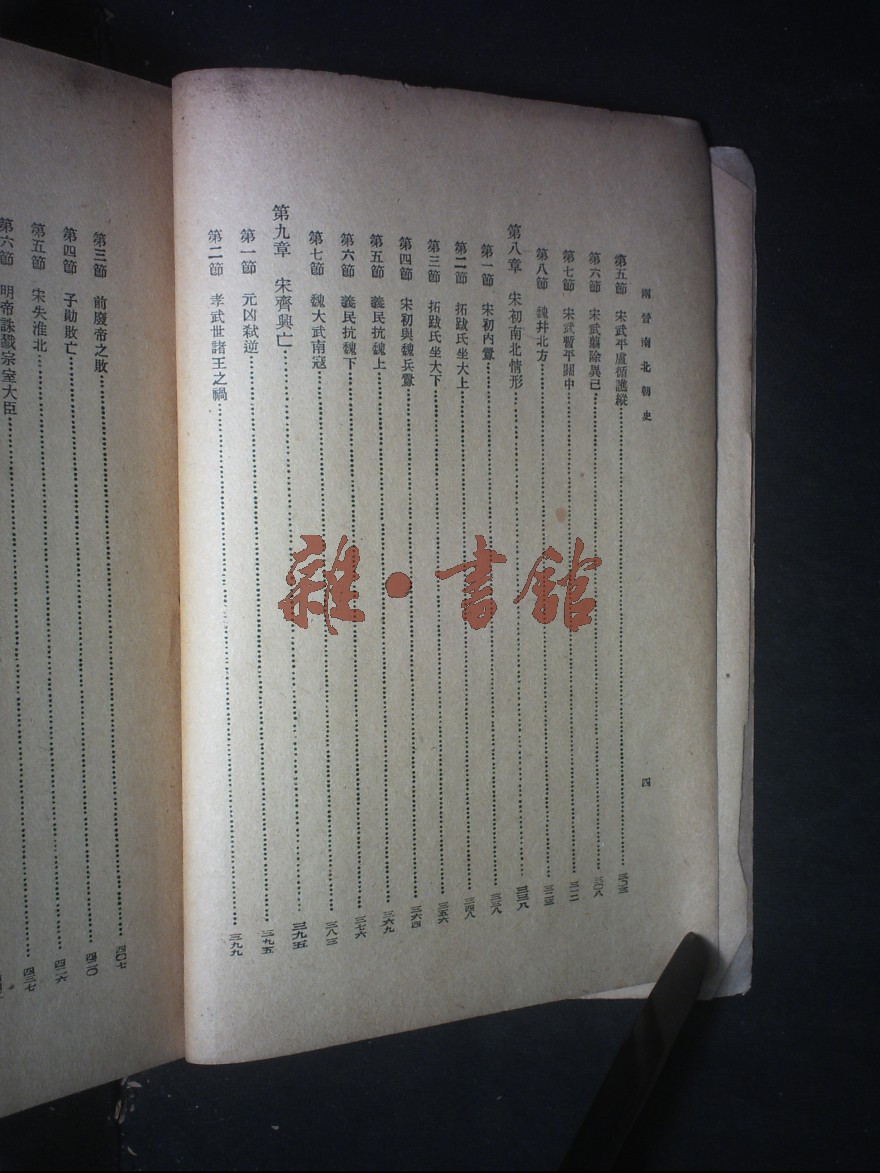 兩晉南北朝史
四
第五節 宋武平盧循譙縱 三〇三
第六節 宋武翦除異己 三〇八
第七節 宋武暫平關中 三一二
第八節 魏并北方 三二三
第八章 宋初南北情形 三三八
第一節 宋初內釁 三三八
第二節 拓跋氏坐大上 三四八
第三節 拓跋氏坐大下 三五六
第四節 宋初與魏兵釁 三六四
第五節 義民抗魏上 三六九
第六節 義民抗魏下 三七六
第七節 魏大武南寇 三八三
第九章 宋齊興亡 三九五
第一節 元凶弒逆 三九五
第二節 孝武世諸王之禍 三九九
第三節 前廢帝之敗 四〇七
第四節 子勛敗亡 四二〇
第五節 宋失淮北 四二六
第六節 明帝誅戮宗室大臣 四三七
雜·書館